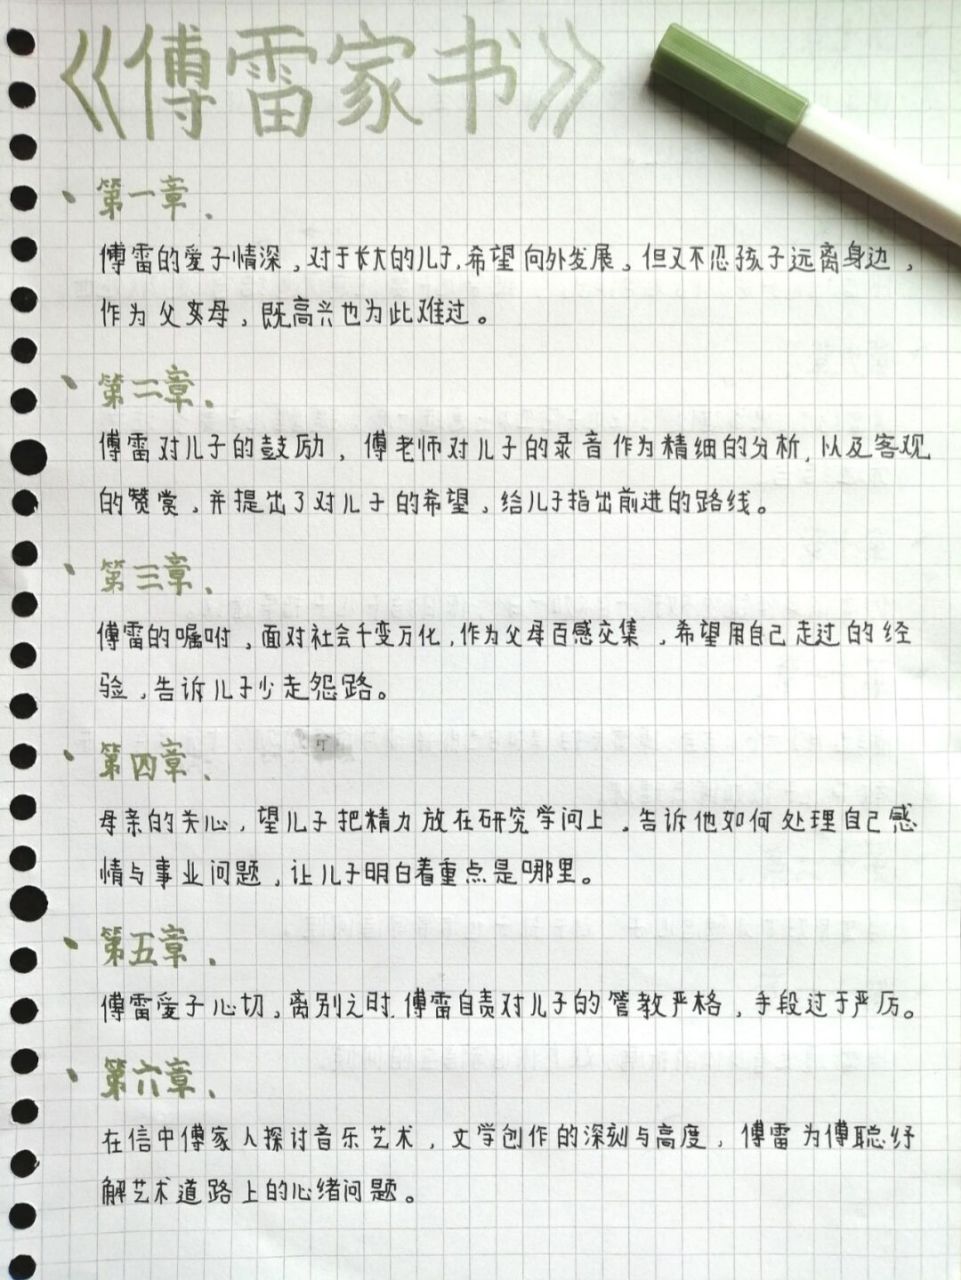 《傅雷家书》
第一章、
傅雷的爱子情深，对于长大的儿子，希望向外发展。但又不忍孩子远离身边，
作为父亲母，既高兴也为此难过。
第二章、
傅雷对儿子的鼓励，傅老师对儿子的录音作为精细的分析，以及客观
的赞赏，并提出了对儿子的希望，给儿子指出前进的路线。
第三章、
傅雷的嘱咐，面对社会千变万化，作为父母百感交集，希望用自己走过的经
验，告诉儿子少走怨路。
第四章、
母亲的关心，望儿子把精力放在研究学问上。告诉他如何处理自己感
情与事业问题，让儿子明白着重点是哪里。
第五章、
傅雷爱子心切，离别之时，傅雷自责对儿子的管教严格，手段过于严厉。
第六章、
在信中傅家人探讨音乐艺术，文学创作的深刻与高度，傅雷为傅聪纾
解艺术道路上的心绪问题。